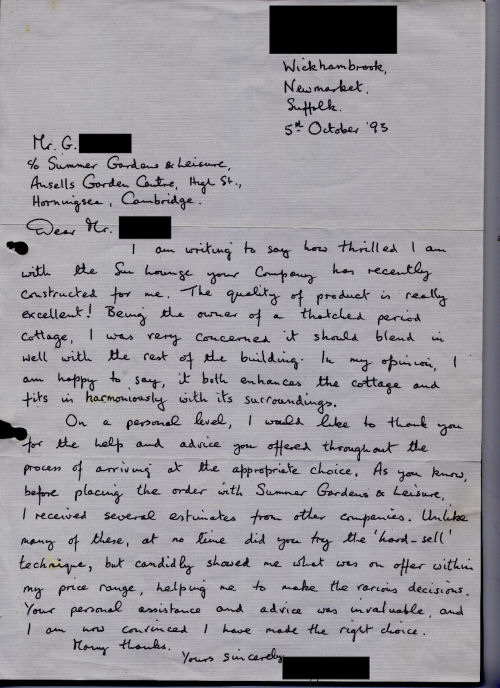 Wickhambrook,
Newmarket,
Suffolk.
5th October '93
Mr. G.
c/o Summer Gardens & Leisure,
Ansells Garden Centre, High St.,
Horningsea, Cambridge.
Dear Mr.
I am writing to say how thrilled I am
with the Sun Lounge your Company has recently
constructed for me. The quality of product is really
excellent! Being the owner of a thatched period
cottage, I was very concerned it should blend in
well with the rest of the building. In my opinion, I
am happy to say, it both enhances the cottage and
fits in harmoniously with its surroundings.
On a personal level, I would like to thank you
for the help and advice you offered throughout the
process of arriving at the appropriate choice. As you know,
before placing the order with Summer Gardens & Leisure,
I received several estimates from other companies. Unlike
many of these, at no time did you try the 'hard-sell'
technique, but candidly showed me what was on offer within
my price range, helping me to make the various decisions.
Your personal assistance and advice was invaluable, and
I am now convinced I have made the right choice.
Many thanks.
Yours sincerely